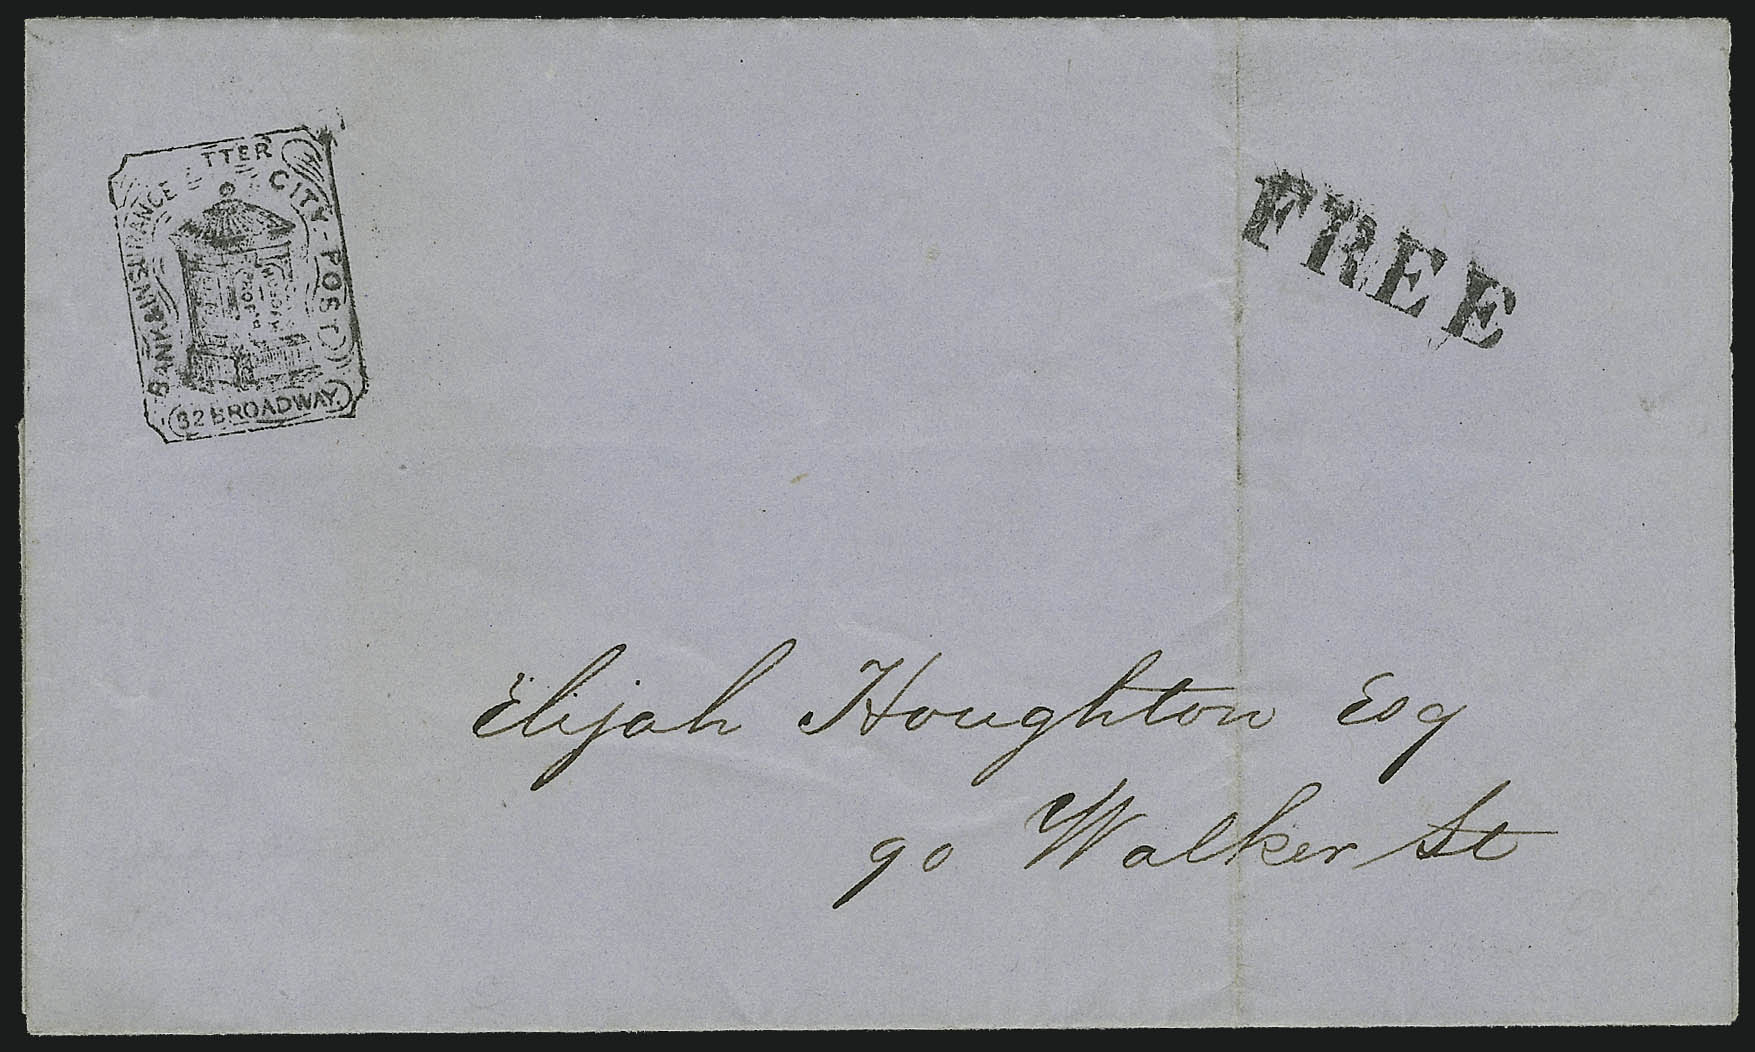 BANK & INSURANCE LETTER CITY-POST
82 BROADWAY.
FREE
Elijah Houghton Esq
90 Walker St